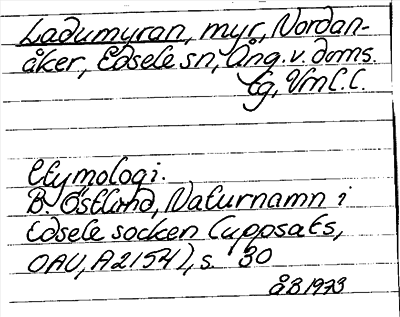 Ladumyran, myr, Nordan-
åker, Edsele sn, Ång. v. doms.
tg, Vml.l.
Etymologi.
B. Östlund, Naturnamn i
Edsele socken (uppsats,
OAU, A2154), s. 30
ÅB 1973